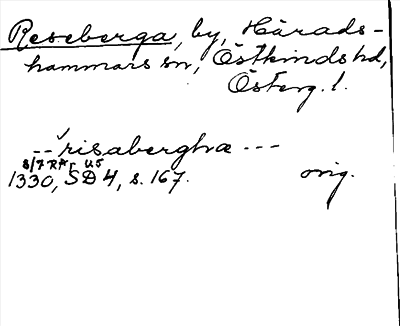 Reseberga, by, Härads-
hammars sn, Östkinds hd,
Österg. l.
-- risabergha ---
8/7 RAp US
1330, SD 4, s. 167. orig.